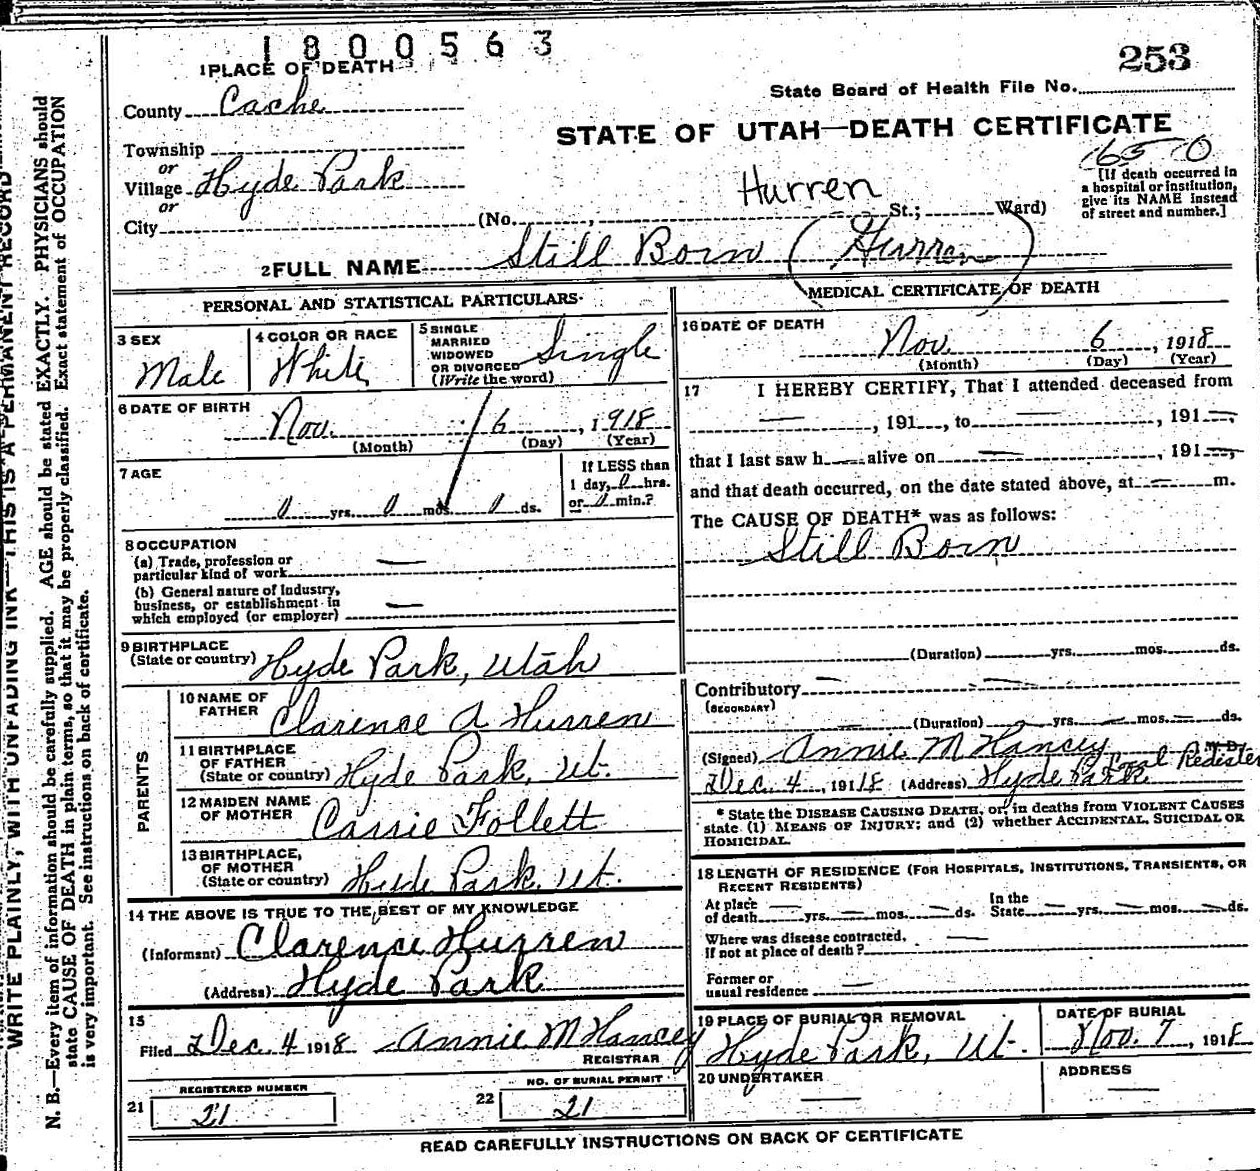 1 8 0 0 5 6 3
253
1 PLACE OF DEATH
State Board of Health File No.
County Cache
STATE OF UTAH—DEATH CERTIFICATE
Township
or
Village Hyde Park
or
City
Hurren
(No. , St.; Ward)
[If death occurred in
a hospital or institution,
give its NAME instead
of street and number.]
2 FULL NAME Still Born (Hurren)
PERSONAL AND STATISTICAL PARTICULARS
3 SEX
Male
4 COLOR OR RACE
White
5 SINGLE
MARRIED
WIDOWED
OR DIVORCED
(Write the word)
Single
6 DATE OF BIRTH
Nov. 6, 1918
(Month) (Day) (Year)
7 AGE
0 yrs. 0 mos. 0 ds.
If LESS than
1 day, 0 hrs.
or 0 min.?
8 OCCUPATION
(a) Trade, profession or
particular kind of work —
(b) General nature of industry,
business, or establishment in
which employed (or employer) —
9 BIRTHPLACE
(State or country) Hyde Park, Utah
PARENTS
10 NAME OF
FATHER Clarence A Hurren
11 BIRTHPLACE
OF FATHER
(State or country) Hyde Park, Ut.
12 MAIDEN NAME
OF MOTHER Cassie Follett
13 BIRTHPLACE,
OF MOTHER
(State or country) Hyde Park, Ut.
14 THE ABOVE IS TRUE TO THE BEST OF MY KNOWLEDGE
(Informant) Clarence Hurren
(Address) Hyde Park
15
Filed Dec. 4 1918 Annie M Hancey
REGISTRAR
REGISTERED NUMBER
21 21
NO. OF BURIAL PERMIT
22 21
MEDICAL CERTIFICATE OF DEATH
16 DATE OF DEATH
Nov. 6, 1918
(Month) (Day) (Year)
17 I HEREBY CERTIFY, That I attended deceased from
—, 191 , to —, 191—,
that I last saw h alive on —, 191—,
and that death occurred, on the date stated above, at — m.
The CAUSE OF DEATH* was as follows:
Still Born
(Duration) yrs. mos. ds.
Contributory —
(SECONDARY)
— (Duration) — yrs. — mos. — ds.
(Signed) Annie M Hancey M.D.
Local Redister
Dec. 4, 1918 (Address) Hyde Park
* State the DISEASE CAUSING DEATH, or, in deaths from VIOLENT CAUSES
state (1) MEANS OF INJURY; and (2) whether ACCIDENTAL, SUICIDAL OR
HOMICIDAL.
18 LENGTH OF RESIDENCE (FOR HOSPITALS, INSTITUTIONS, TRANSIENTS, OR
RECENT RESIDENTS)
At place
of death — yrs. — mos. — ds.
In the
State — yrs. — mos. — ds.
Where was disease contracted,
if not at place of death? —
Former or
usual residence —
19 PLACE OF BURIAL OR REMOVAL
Hyde Park, Ut.
DATE OF BURIAL
Nov. 7, 1918
20 UNDERTAKER
—
ADDRESS
—
READ CAREFULLY INSTRUCTIONS ON BACK OF CERTIFICATE
WRITE PLAINLY, WITH UNFADING INK—THIS IS A PERMANENT RECORD
N. B.—Every item of information should be carefully supplied. AGE should be stated EXACTLY. PHYSICIANS should
state CAUSE OF DEATH in plain terms, so that it may be properly classified. Exact statement of OCCUPATION
is very important. See instructions on back of certificate.